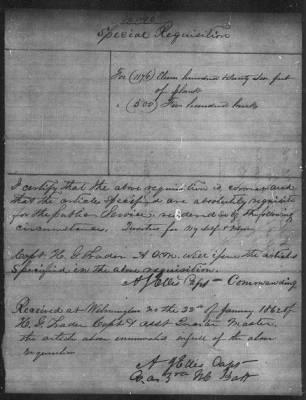 Special Requisition
For (1176) Eleven hundred & Seventy Six feet
of plank
" (500) Five hundred bricks
I certify that the above requisition is correct and
that the articles specified are absolutely requisite
for the public Service rendered so by the following
circumstances. Quarters for My Self &
Capt H. G. A.Q.M. will issue the articles
Specified in the above requisition.
A J Ellis Capt Commanding
Received at Wilmington on the 22nd of January 1862 of
H. G. Capt & asst Quarter Master.
the articles above enumerated in full of the above
requisition
A J Ellis Capt
NC Batt